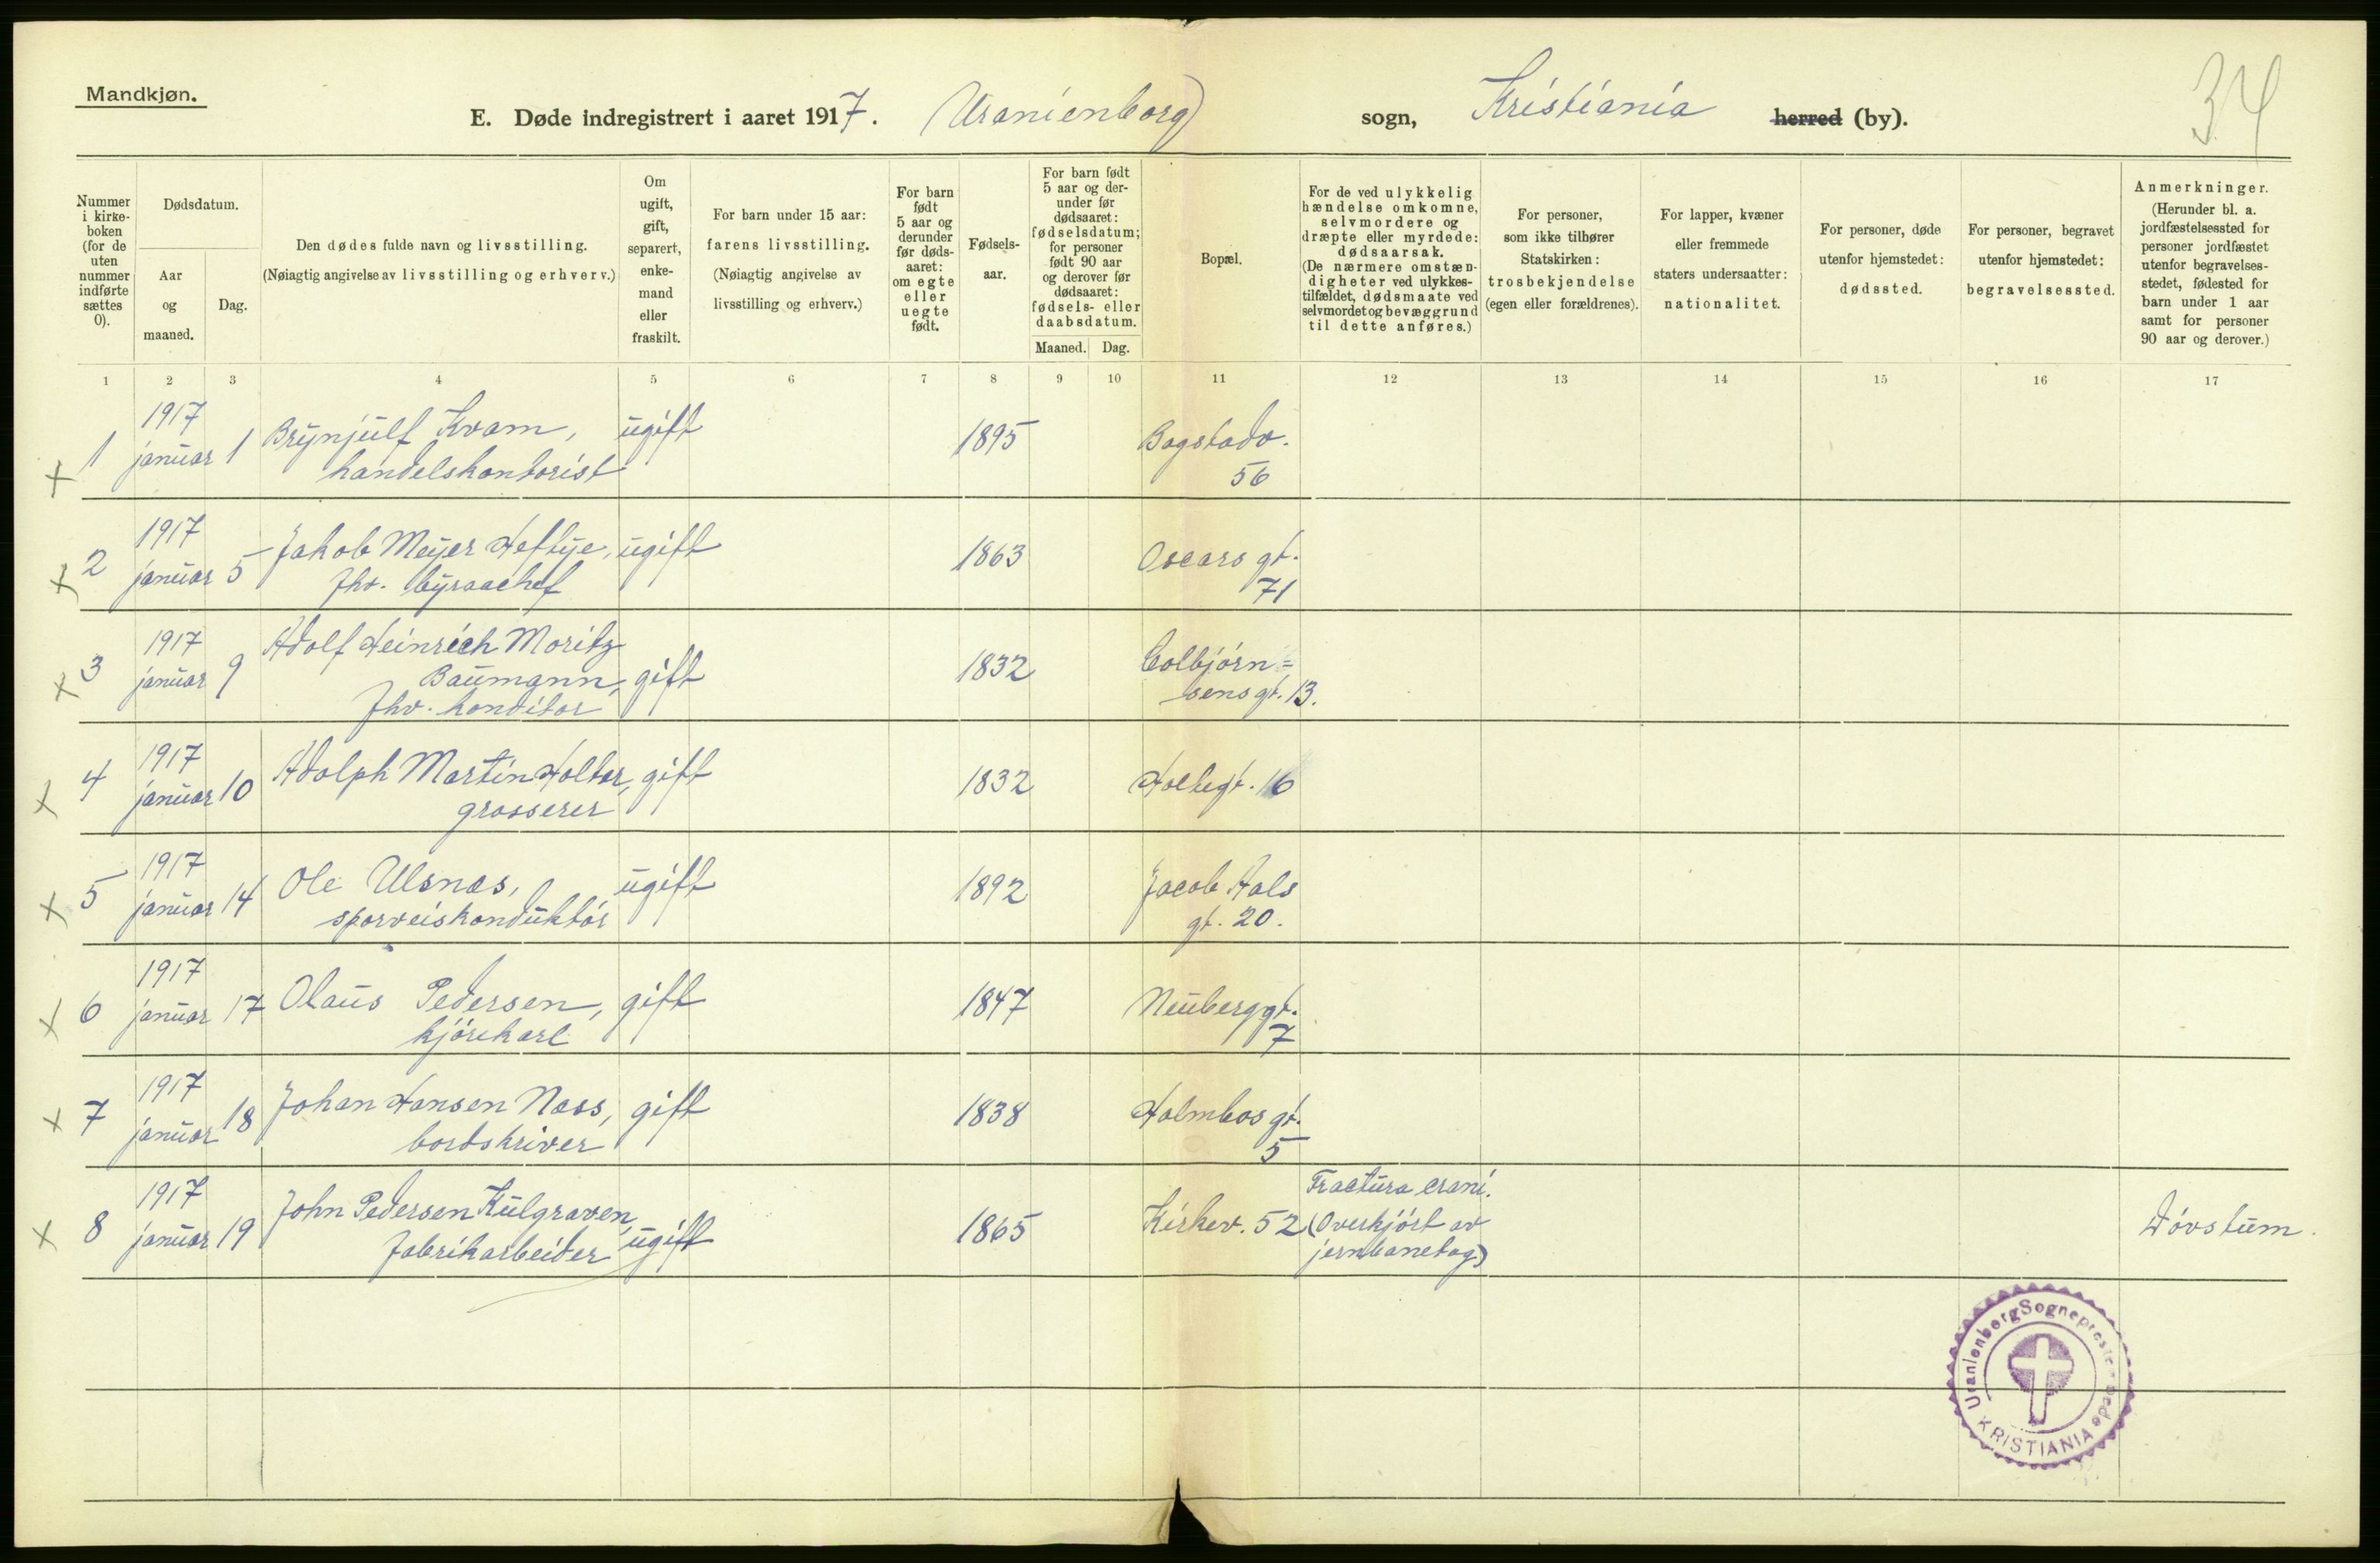 Mandkjøn.
E. Døde indregistrert i aaret 1917. (Uranienborg) sogn, Kristiania herred (by).
34
Nummer i kirke-boken (for de uten nummer indførte sættes 0).
Dødsdatum.
Aar og maaned.
Dag.
Den dødes fulde navn og livsstilling.
(Nøiagtig angivelse av livsstilling og erhverv.)
Om ugift, gift, separert, enke-mand eller fraskilt.
For barn under 15 aar:
farens livsstilling.
(Nøiagtig angivelse av
livsstilling og erhverv.)
For barn født 5 aar og derunder før døds-aaret: om egte eller uegte født.
Fødsels-aar.
For barn født 5 aar og der-under før dødsaaret: fødselsdatum; for personer født 90 aar og derover før dødsaaret: fødsels- eller daabsdatum.
Maaned. Dag.
Bopæl.
For de ved ulykkelig hændelse omkomne, selvmordere og dræpte eller myrdede: dødsaarsak.
(De nærmere omstæn-digheter ved ulykkes-tilfældet, dødsmaate ved selvmordet og bevæggrund til dette anføres.)
For personer, som ikke tilhører Statskirken: trosbekjendelse (egen eller forældrenes).
For lapper, kvæner eller fremmede staters undersaatter: nationalitet.
For personer, døde utenfor hjemstedet: dødssted.
For personer, begravet utenfor hjemstedet: begravelsessted.
Anmerkninger.
(Herunder bl. a. jordfæstelsessted for personer jordfæstet utenfor begravelses-stedet, fødested for barn under 1 aar samt for personer 90 aar og derover.)
1 2 3 4 5 6 7 8 9 10 11 12 13 14 15 16 17
x 1 1917 januar 1 Brynjulf Kvam, ugift 1895 Bogstadv.
handelskontorist 56
x 2 1917 januar 5 Jakob Meyer Heftye, ugift 1863 Oscars gt.
fhv. byraachef 71
x 3 1917 januar 9 Adolf Heinrich Moritz
Baumann, gift 1832 Colbjørn=
fhv. konditor sens gt. 13.
x 4 1917 januar 10 Adolph Martin Holter, gift 1832 Holtegt. 16
grosserer
x 5 1917 januar 14 Ole Ulsnes, ugift 1892 Jacob Aals
sporveiskonduktør gt. 20.
x 6 1917 januar 17 Olaus Pedersen, gift 1847 Neuberggt.
kjørekarl 7
x 7 1917 januar 18 Johan Hansen Næss, gift 1838 Holmbos gt.
bordskriver 5
x 8 1917 januar 19 John Pedersen Kulgraven, ugift 1865 Kirkev. 52 Fractura crani.
fabrikarbeider (Overkjørt av
jernbanetog)
Døvstum.
Uranienborg Sogneprestembede
KRISTIANIA